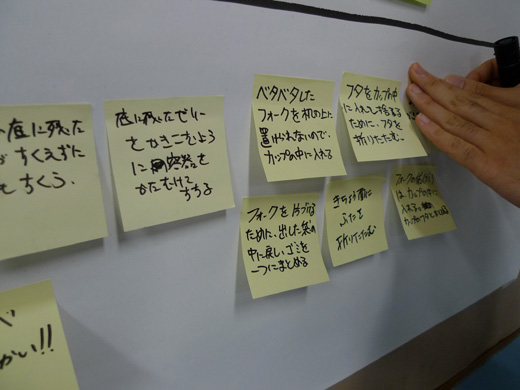 底に残った
がすくえずに
もすくう.
底に残ったゼリー
をかきこむように
に容器を
かたむけて
すする
ベタベタした
フォークを机の上に
置けられないので、
カップの中に入れる
フタをカップの中
に入れて捨てる
ために、フタを
折りたたむ.
フォークを片づける
ために、出した袋の
中に戻し、ゴミを
一つにまとめる
きちょう面に
ふたを
折りたたむ
は、カップの中に
入れる
かい!!